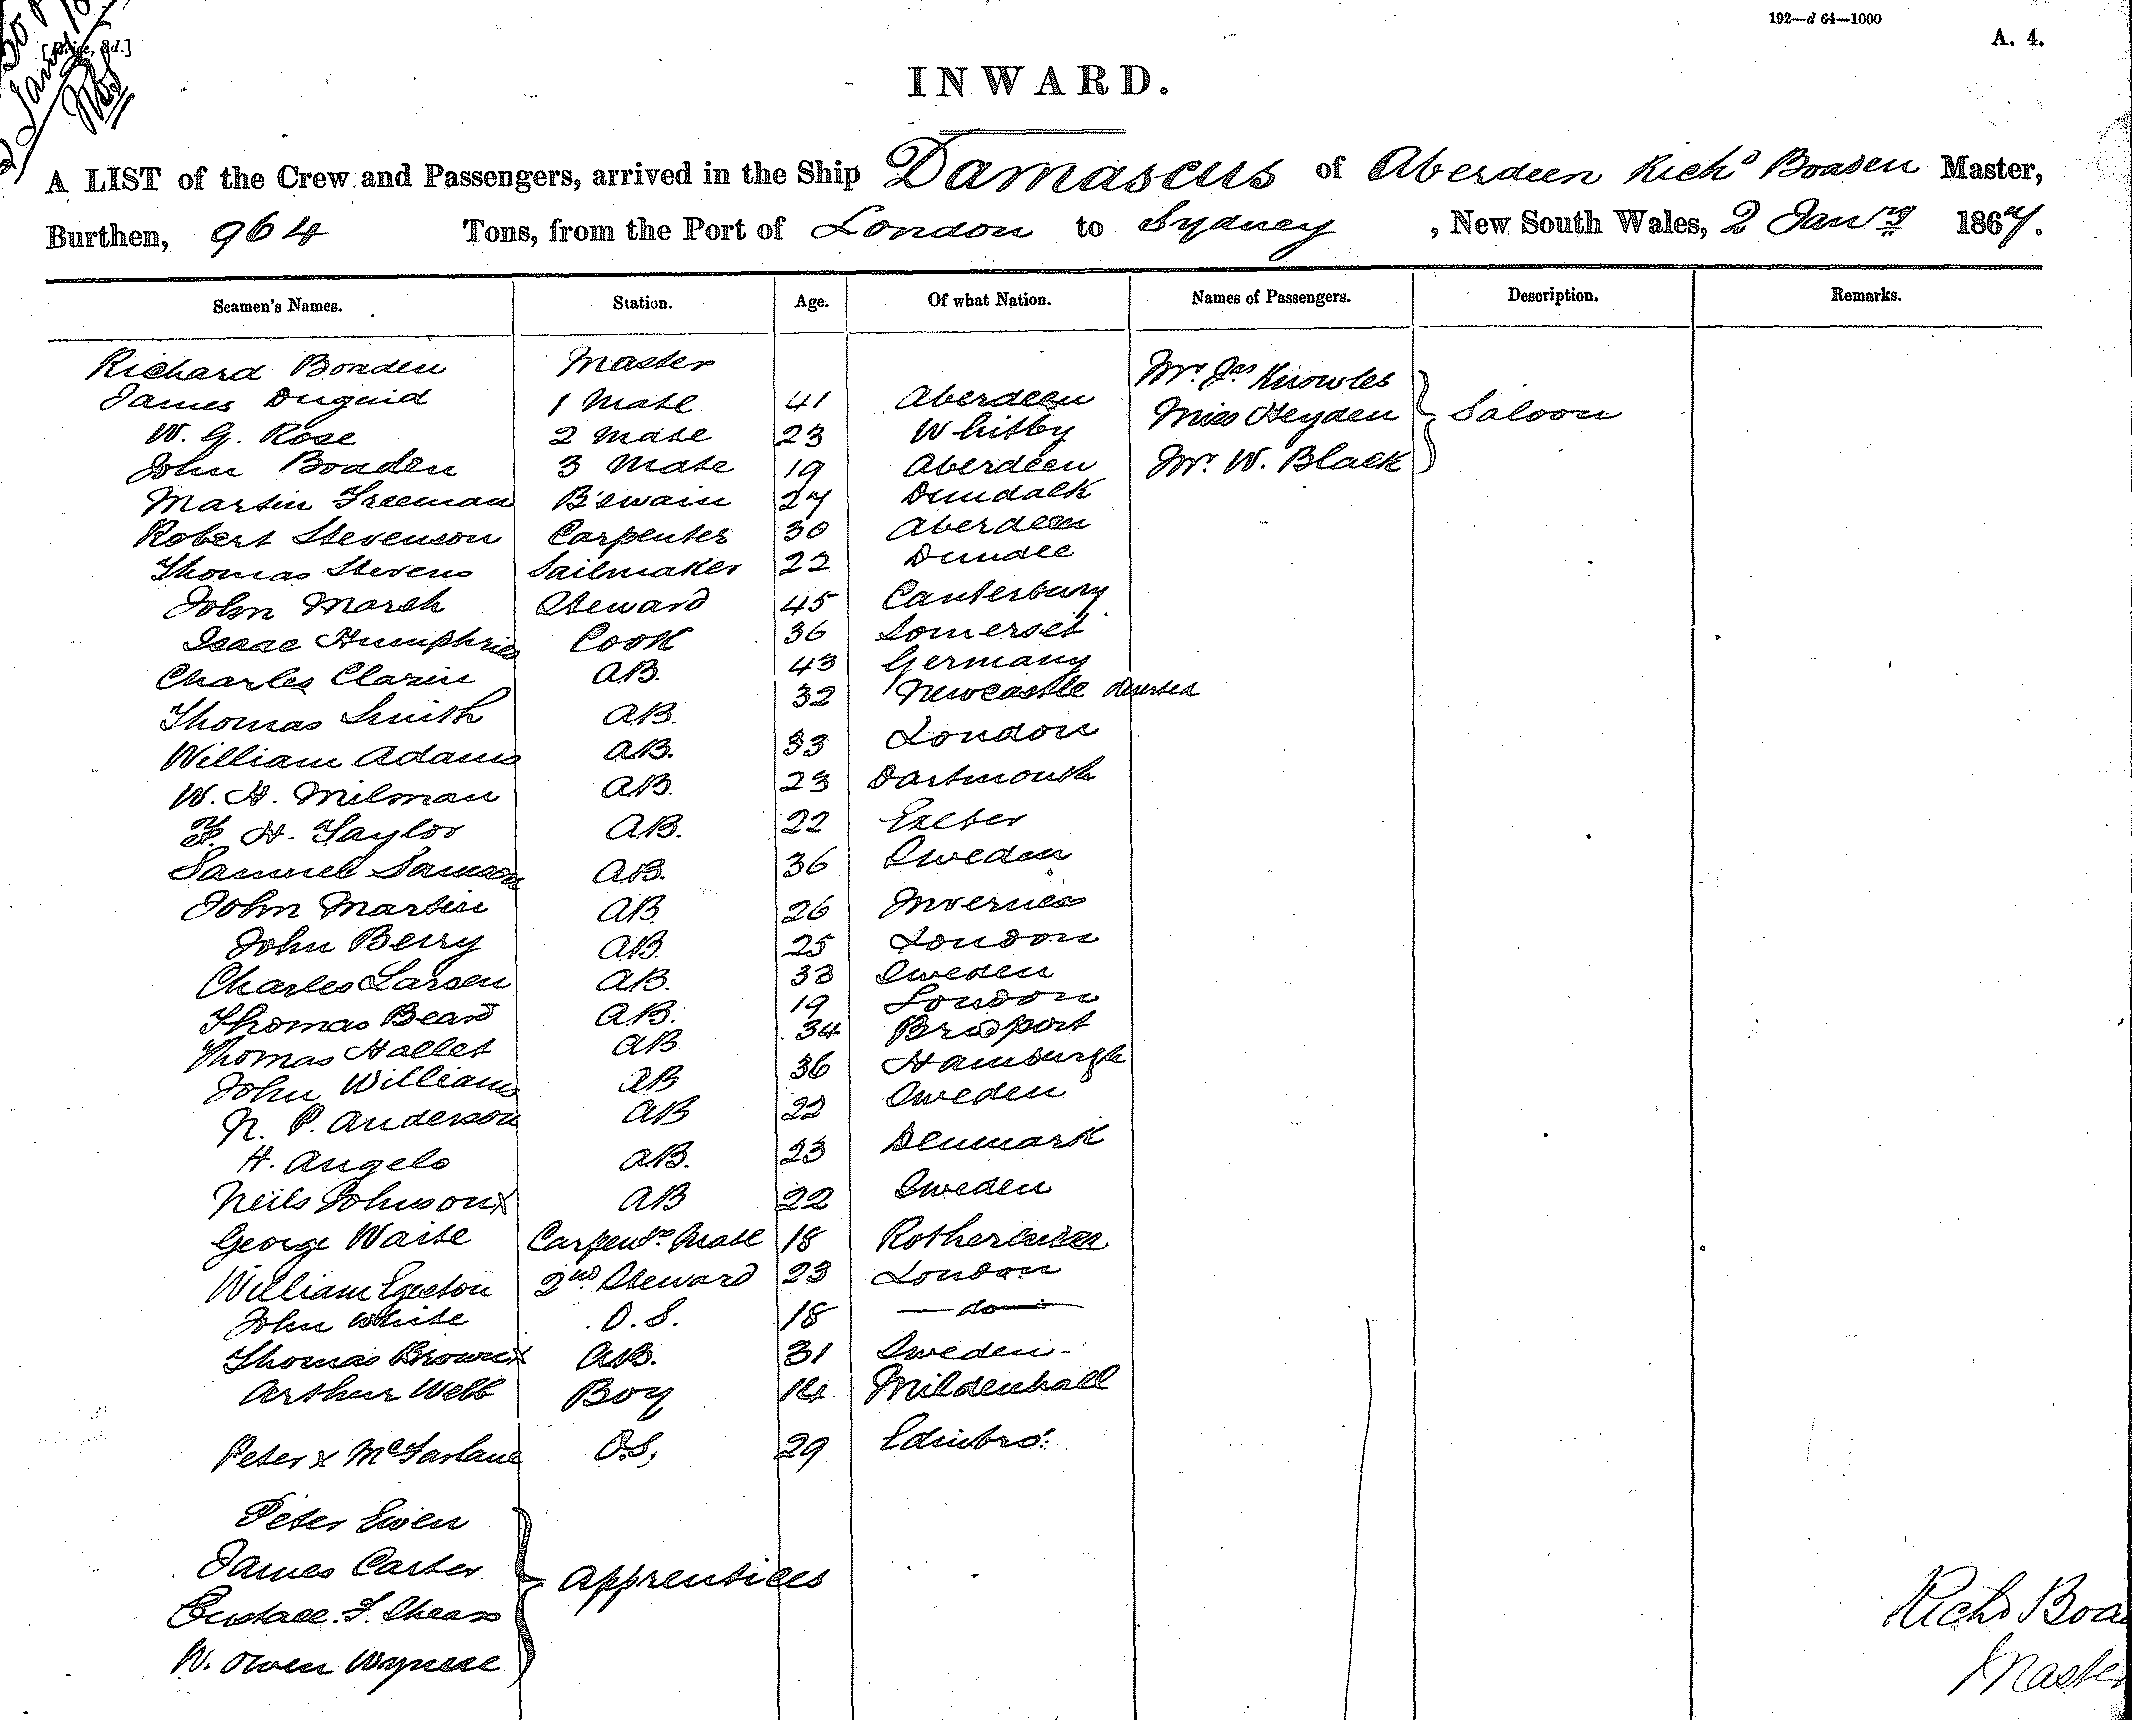 192—d 64—1000
A. 4.
INWARD.
A LIST of the Crew and Passengers, arrived in the Ship Damascus of Aberdeen Richd Boaden Master,
Burthen, 964 Tons, from the Port of London to Sydney, New South Wales, 2 Jany 1867.
Seamen's Names. Station. Age. Of what Nation. Names of Passengers. Description. Remarks.
Richard Boaden Master Mr. Jas Knowles
James Duguid 1 Mate 41 Aberdeen Miss Heyden Saloon
W. G. Rose 2 Mate 23 Whitby
John Boaden 3 Mate 19 Aberdeen Mr. W. Black
Martin Freeman B'swain 27 Dundalk
Robert Stevenson Carpenter 30 Aberdeen
Thomas Stevens Sailmaker 22 Dundee
John Marsh Steward 45 Canterbury
Isaac Humphries Cook 36 Somerset
Charles AB. 43 Germany
Thomas Smith AB. 32 Newcastle deserted
William Adams AB. 33 London
W. H. Milman AB. 23 Dartmouth
F. H. Taylor AB. 22 Exeter
Samuel AB. 36 Sweden
John Martin AB. 26 Inverness
John Berry AB. 25 London
Charles Larsen AB. 33 Sweden
Thomas Beard AB. 19 London
Thomas Hallet AB 34 Bridport
John Williams AB 36 Hamburgh
N. P. Anderson AB 22 Sweden
H. Angelo AB. 23 Denmark
Neils Johnson x AB 22 Sweden
George Waite Carpentr Mate 18
William 2nd Steward 23 London
John White O.S. 18 — do —
Thomas Brown x AB. 31 Sweden
Arthur Webb Boy 14 Mildenhall
Peter x McFarlane O.S. 29 Edinbro'
Peter Ewen
James Carter Apprentices
W. Owen
Richd Boa
Master